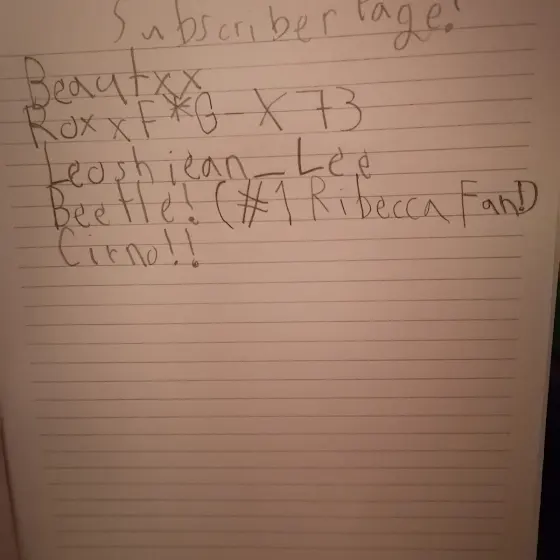 Subscriber Page!
Beautxx
RoxxF*G-X73
Leoshjean_Lee
Beetle! (#1 Ribecca Fan!)
Cirno!!